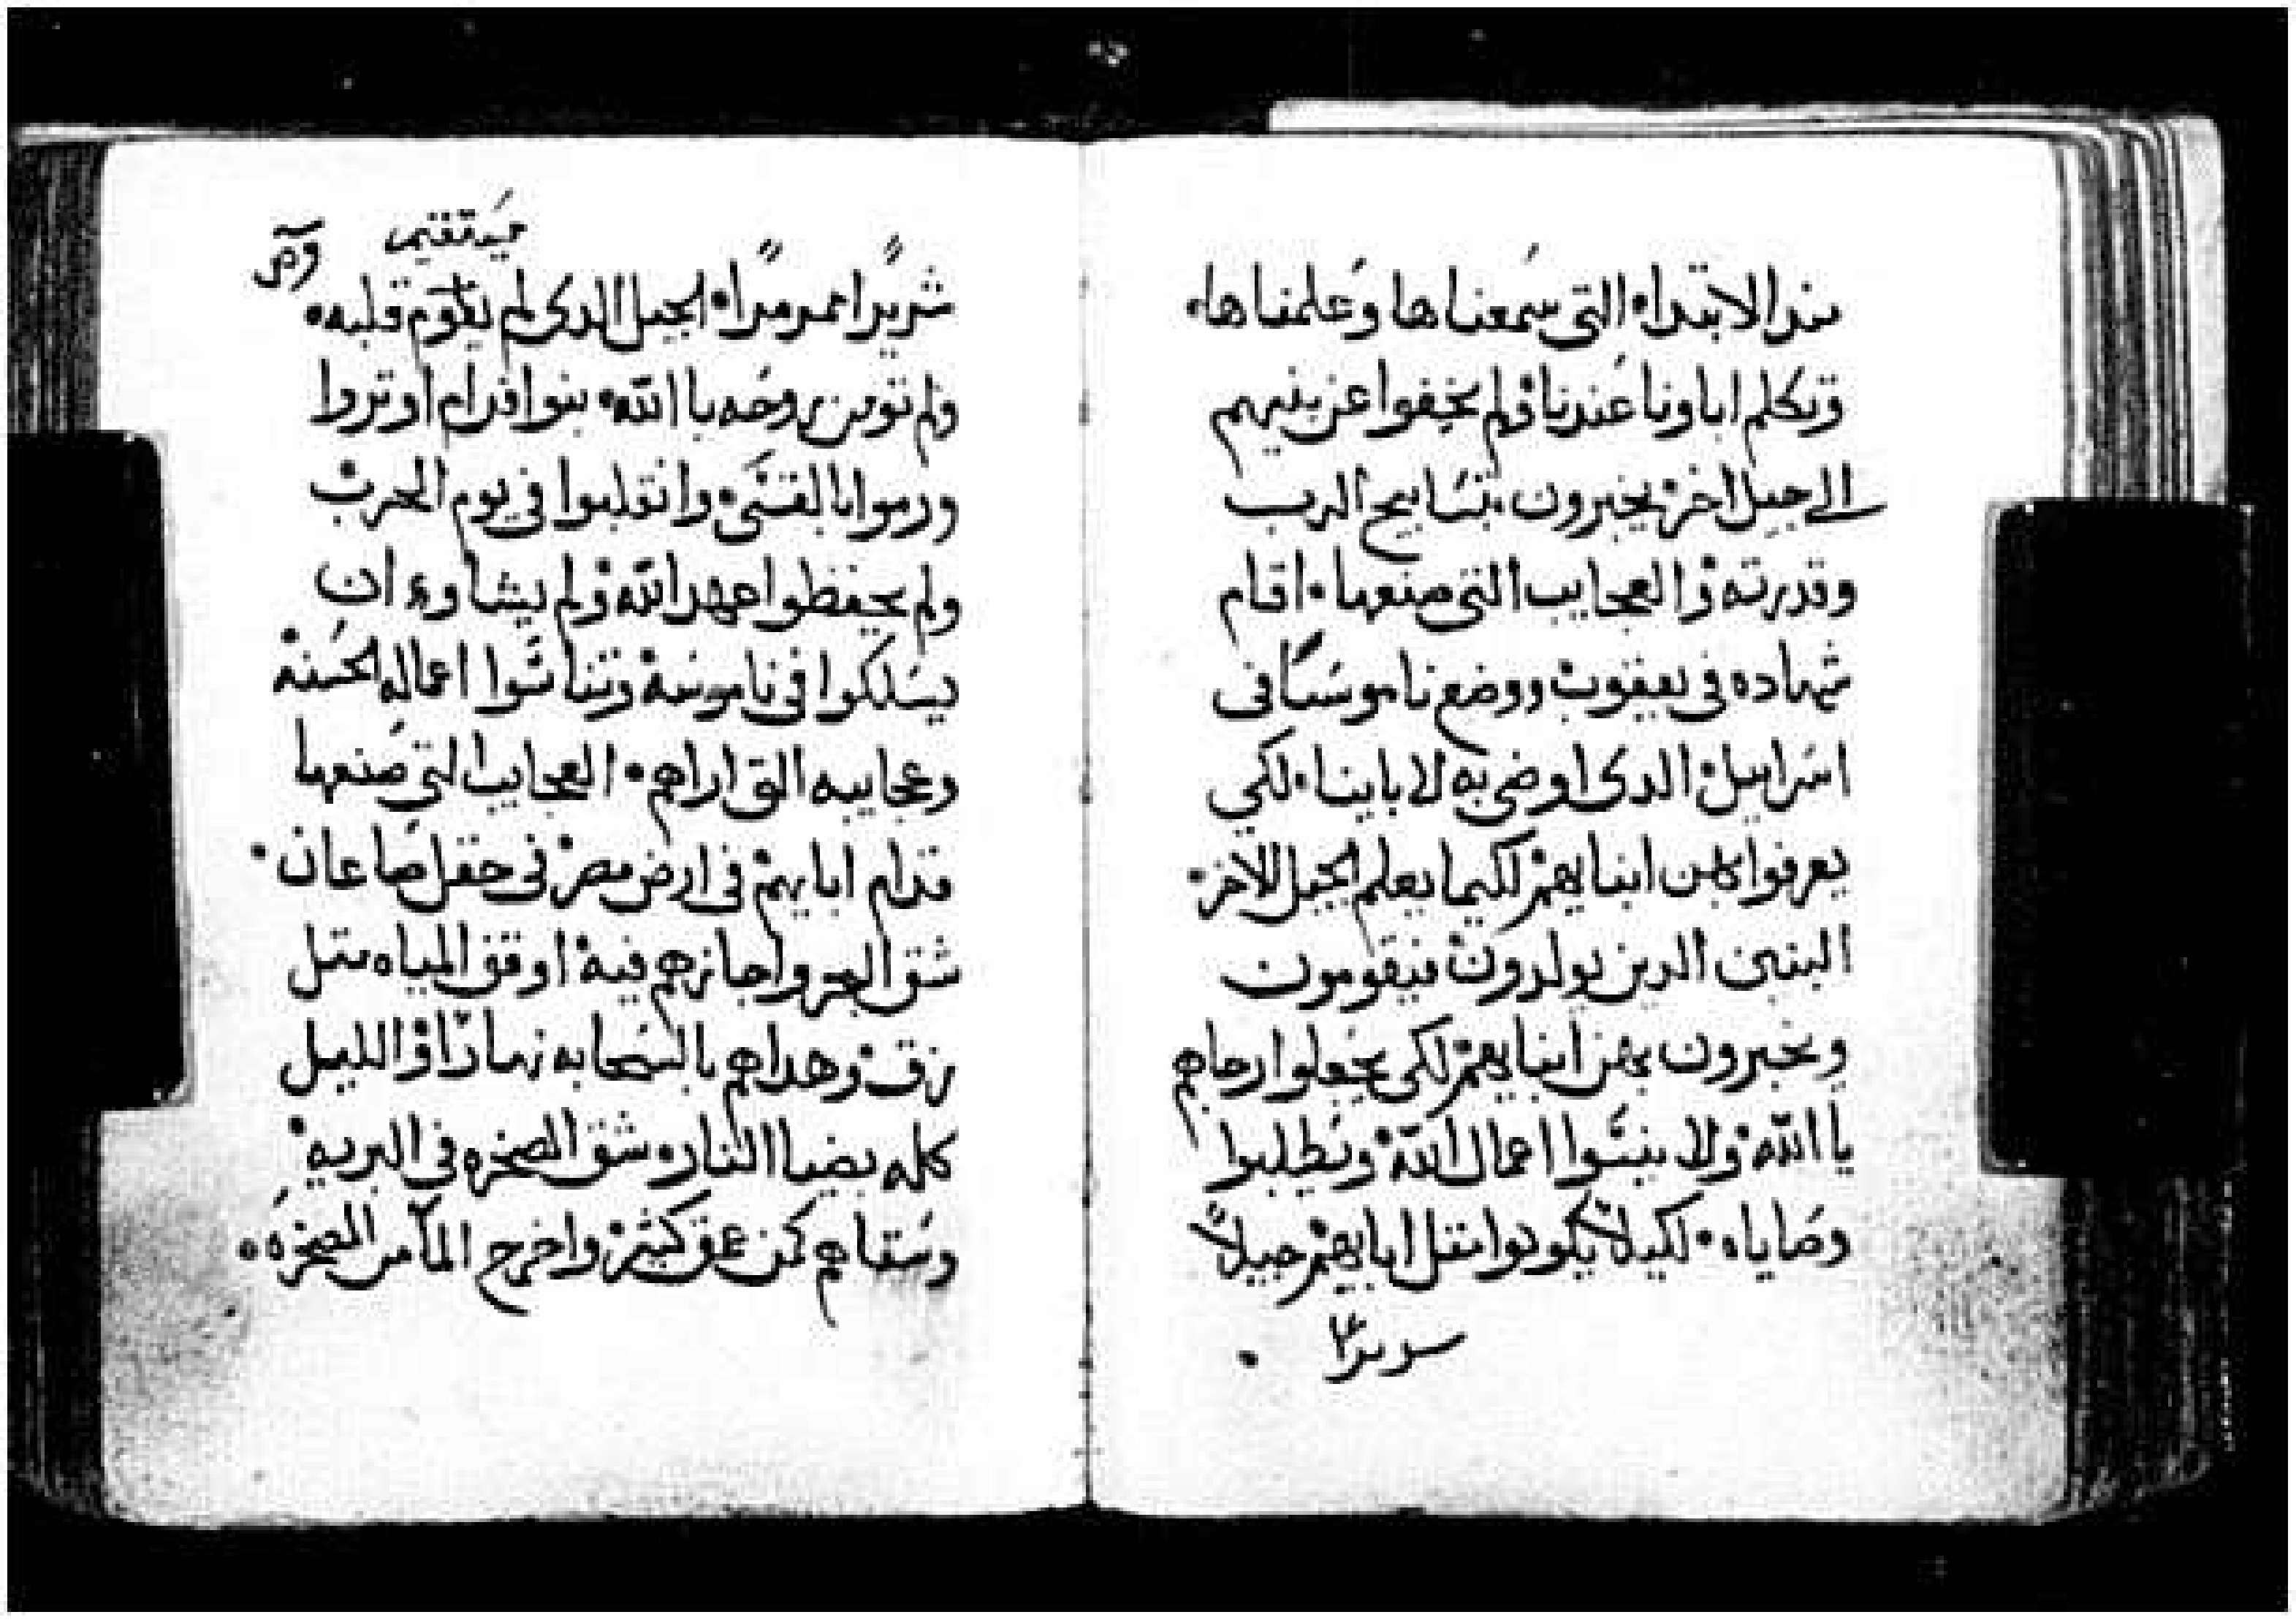 منذ الابتداء التى سمعناها وعلمناها
وتكلم اباونا عندنا ولم يخفوا عن بنيهم
الى جيل اخر يخبرون بتسابيح الرب
وقدرته والعجايب التى صنعها اقام
شهاده فى يعقوب ووضع ناموسًا فى
اسراييل الدى اوصى به لاباينا لكي
يعرفوا بهن ابنايهم لكيما يعلم الجيل الاخر
البنين الدين يولدون فيقومون
ويخبرون بهن ابنايهم لكى يجعلوا رجاهم
باالله ولا ينسوا اعمال الله ويطلبوا
وصاياه لكيلا يكونوا متل ابايهم جيلاً
شريرًا
يستقيم
شريرًا ممرمرًا الجيل الدى لم يقوم قلبه
ولم تومن روحه باالله بنوا افرام اوتروا
ورموا بالقسى وانقلبوا في يوم الحرب
ولم يحفظوا عهد الله ولم يشاوء ان
يسلكوا فى ناموسه وتناسوا اعماله الحسنه
وعجايبه التى اراهم العجايب التي صنعها
قدام ابايهم فى ارض مصر فى حقل صاعان
شق البحر واجازهم فيه اوقف المياه متل
زق وهداهم بالسحابه نهارًا والليل
كله بضيا النار وشق الصخره في البريه
وسقاهم كمن عمق كثير واخرج الما من الصخره